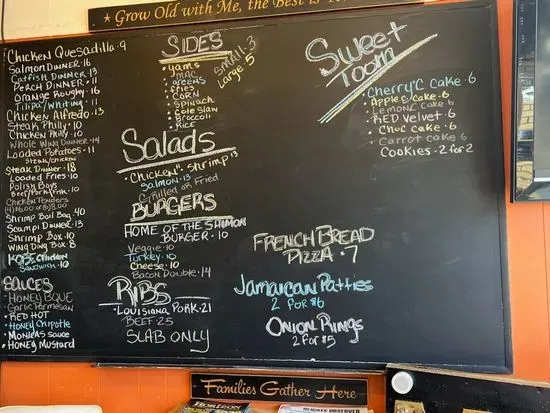 ★ Grow Old with Me, the Best is
Chicken Quesadilla · 9
Salmon Dinner · 16
Catfish Dinner · 13
Perch Dinner · 11
Orange Roughy · 16
Tilipa/Whiting · 11
Chicken Alfredo · 13
Steak Philly · 10
Chicken Philly · 10
Whole Wing Dinner · 14
Loaded Potatoes · 11
Steak/chicken
Steak Dinner · 18
Loaded Fries · 10
Polish Boys
Beef/Pork/Fish · 10
Chicken Tenders
Shrimp Boil Bag · 40
Scampi Dinner · 13
Shrimp Box · 10
Wing Ding Box · 8
Chicken
Sandwich · 10
SAUCES
• Honey BQUE
• Garlic Parmesan
• RED HOT
• Honey Chipotle
• Monica's sauce
• Honey Mustard
SIDES
• Yams
• Mac
• Greens
• Fries
• CORN
• Spinach
• Cole Slaw
• Broccoli
• Rice
Small · 3
Large 5
Salads
• Chicken · Shrimp 13
Salmon · 13
Grilled or Fried
BURGERS
HOME OF THE SALMON
BURGER · 10
Veggie · 10
Turkey · 10
Cheese · 10
Bacon Double · 14
RIBS
• Louisiana PORK · 21
BEEF · 25
SLAB ONLY
Sweet
Tooth
• Cherry C Cake · 6
• Apple C Cake · 6
• Lemon C Cake · 6
• RED Velvet · 6
• Choc Cake · 6
• Carrot Cake 6
Cookies · 2 for 2
FRENCH BREAD
PIZZA · 7
Jamaican Patties
2 FOR $6
Onion Rings
2 for $5
Families Gather Here
HORIZON
HEIGHTS OBSERVER